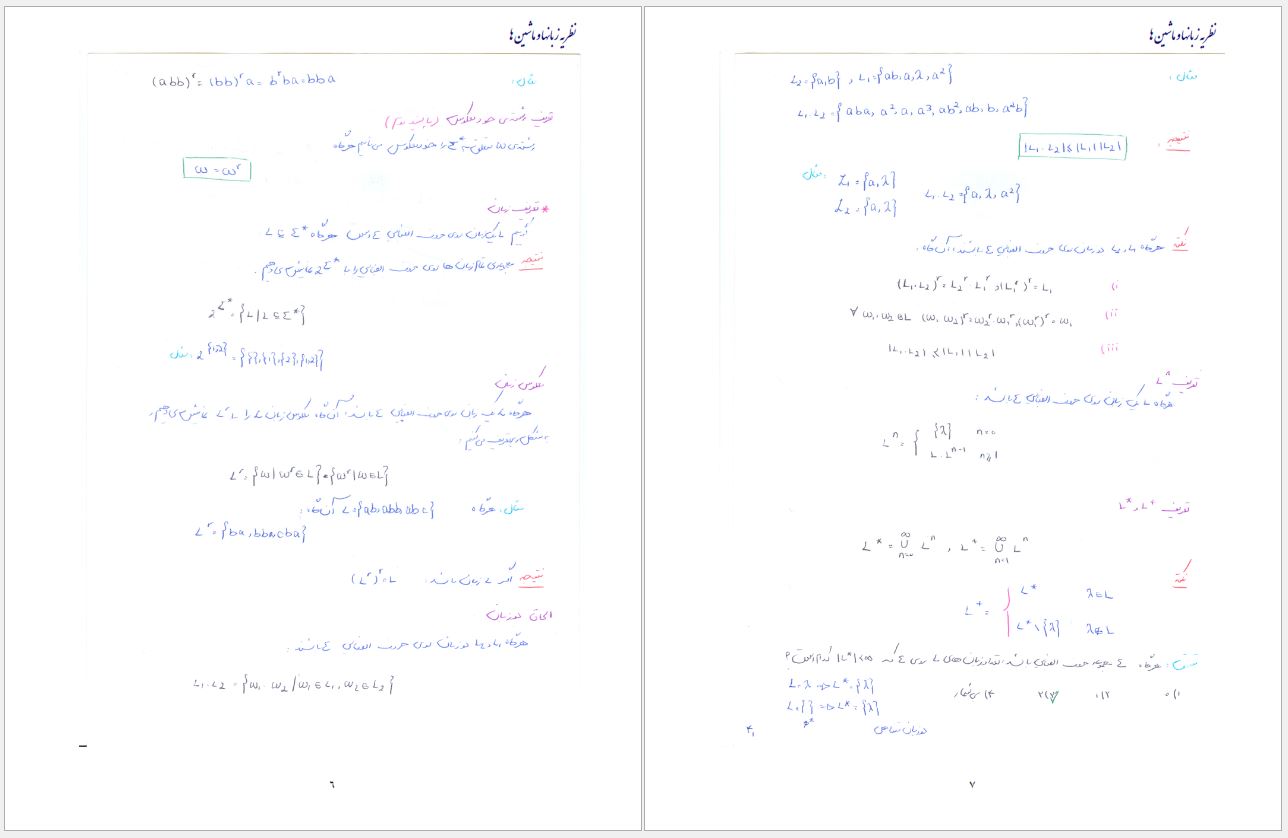 نظریه زبانها و ماشین ها
مثال:
(abb)^r = (bb)^r a = b^r ba = bba
تعریف رشته‌ی خود معکوس (پالیندروم)
رشته‌ی ω متعلق به Σ* را خود معکوس می نامیم هرگاه
ω = ω^r
* تعریف زبان
گوییم L یک زبان روی حروف الفبای Σ است هرگاه L ⊆ Σ*
نتیجه مجموعه‌ی تمام زبان ها روی حروف الفبای را با 2^Σ* نمایش می دهیم.
2^Σ* = {L | L ⊆ Σ*}
مثال: 2^{1,2} = {{},{1},{2},{1,2}}
معکوس زبان
هرگاه L یک زبان روی حروف الفبای Σ باشد، آن گاه معکوس زبان L را با L^r نمایش می دهیم
به شکل زیر تعریف می کنیم:
L^r = {ω | ω^r ∈ L} = {ω^r | ω ∈ L}
مثال: هرگاه L = {ab, abb, abc} آن گاه:
L^r = {ba, bba, cba}
نتیجه اگر L زبان باشد (L^r)^r = L
الحاق دو زبان
هرگاه L₁ و L₂ دو زبان روی حروف الفبای Σ باشند:
L₁.L₂ = {ω₁.ω₂ | ω₁ ∈ L₁, ω₂ ∈ L₂}
٦
نظریه زبانها و ماشین ها
مثال: L₂ = {a,b} , L₁ = {ab, a, λ, a²}
L₁.L₂ = {aba, a², a, a³, ab², ab, b, a²b}
نتیجه: |L₁.L₂| ≤ |L₁||L₂|
مثال: L₁ = {a, λ}
L₂ = {a, λ}
L₁.L₂ = {a, λ, a²}
نکته هرگاه L₁ و L₂ دو زبان روی حروف الفبای Σ باشند، آن گاه:
i) (L₁.L₂)^r = L₂^r . L₁^r , (L₁^r)^r = L₁
ii) ∀ ω₁,ω₂ ∈ L (ω₁.ω₂)^r = ω₂^r.ω₁^r, (ω₁^r)^r = ω₁
iii) |L₁.L₂| ≤ |L₁||L₂|
تعریف L^n
هرگاه L یک زبان روی حروف الفبای Σ باشد:
L^n = { {λ} n=0
L.L^{n-1} n≥1
تعریف L* و L⁺
L* = ⋃_{n=0}^∞ L^n , L⁺ = ⋃_{n=1}^∞ L^n
نکته
L⁺ = { L* λ∈L
L* \ {λ} λ∉L
تست: هرگاه Σ مجموعه حروف الفبای باشد، تعداد زبان های L روی Σ که |L*|<∞ کدام است؟
۱) ۰ ۲) ۱ ۳) ۲ ۴) بی شمار
L = λ => L* = {λ}
L = {} => L* = {λ}
دو زبان متناهی
٧